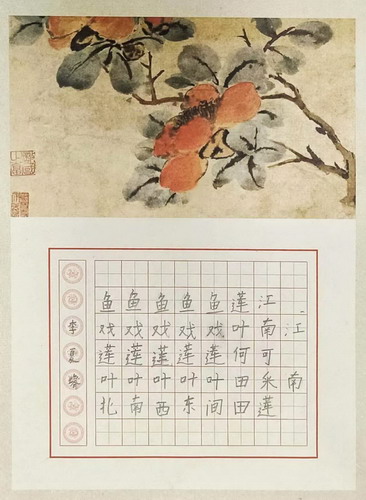 江南
江南可采莲
莲叶何田田
鱼戏莲叶间
鱼戏莲叶东
鱼戏莲叶西
鱼戏莲叶南
鱼戏莲叶北
李夏